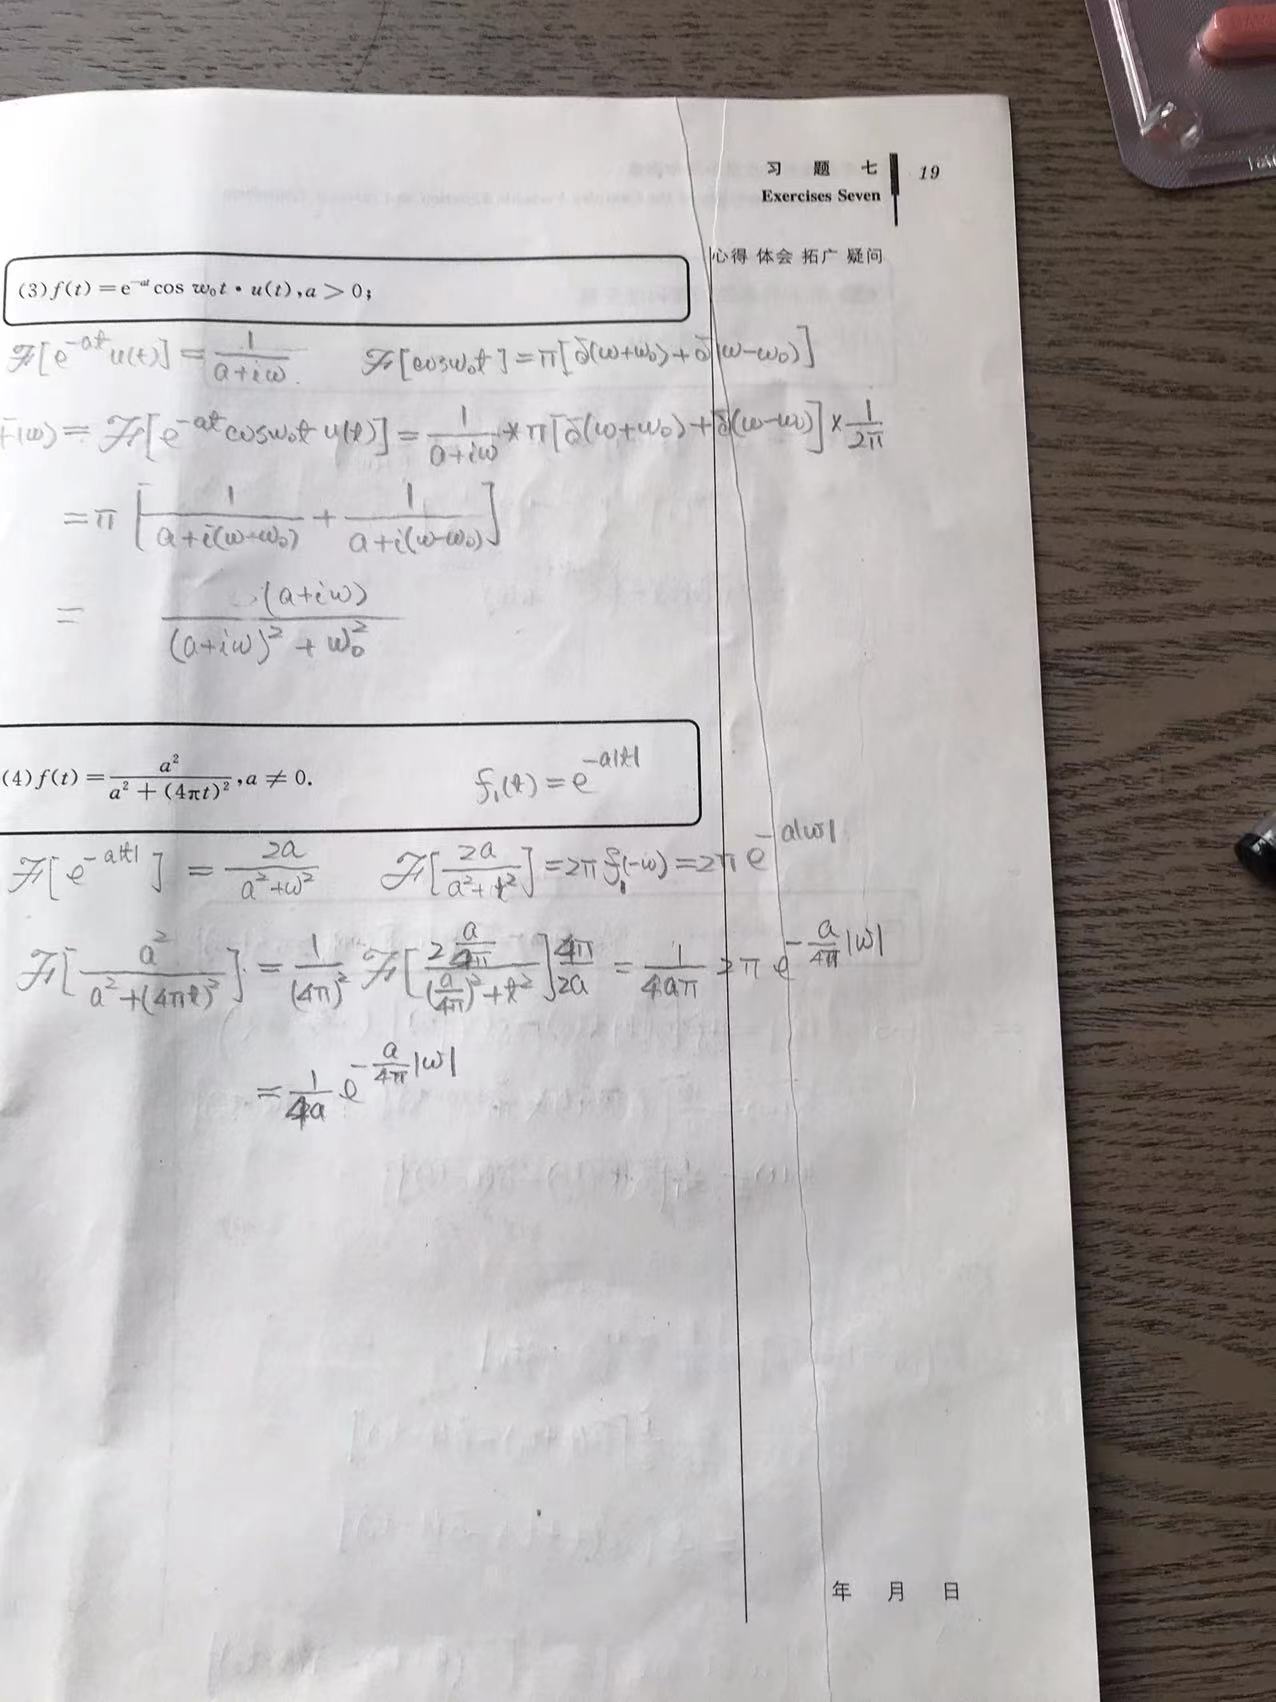 习 题 七 19
Exercises Seven
心得 体会 拓广 疑问
(3) f(t) = e^{-at} cos w₀t · u(t), a > 0;
ℱ[e^{-at}u(t)] = 1/(a+iω) ℱ[cosω₀t] = π[δ(ω+ω₀)+δ(ω-ω₀)]
F(ω) = ℱ[e^{-at}cosω₀t u(t)] = 1/(a+iω) * π[δ(ω+ω₀)+δ(ω-ω₀)] × 1/2π
= π [1/(a+i(ω+ω₀)) + 1/(a+i(ω-ω₀))]
= (a+iω)/((a+iω)²+ω₀²)
(4) f(t) = a²/(a²+(4πt)²), a ≠ 0. f₁(t) = e^{-a|t|}
ℱ[e^{-a|t|}] = 2a/(a²+ω²) ℱ[2a/(a²+t²)] = 2πf₁(-ω) = 2πe^{-a|ω|}
ℱ[a²/(a²+(4πt)²)] = 1/(4π)² ℱ[2(a/4π)/((a/4π)²+t²)] 4π/2a = 1/(4aπ) 2π e^{-(a/4π)|ω|}
= 1/(4a) e^{-(a/4π)|ω|}
年 月 日